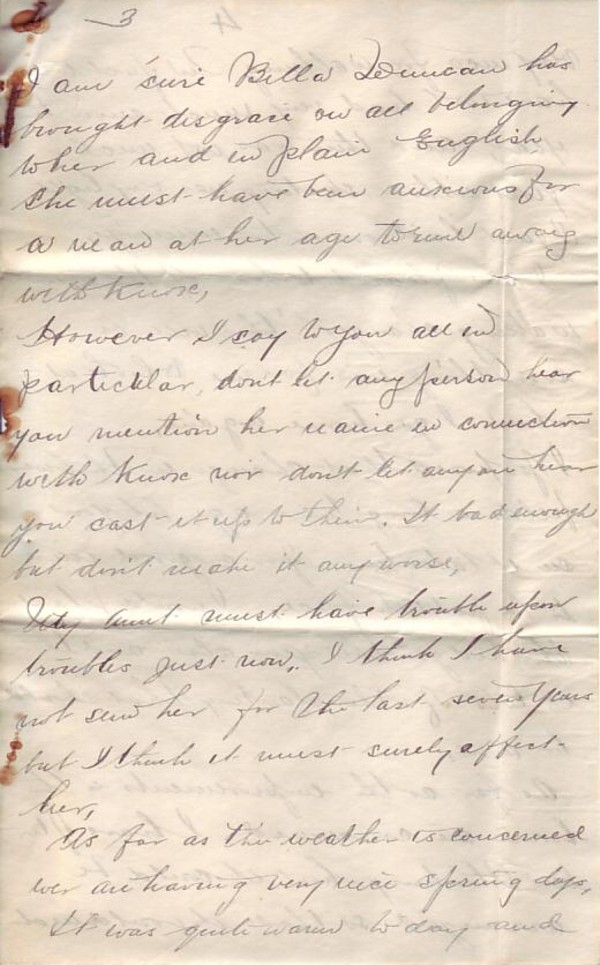 3
I am sure Bella Duncan has
brought disgrace on all belonging
to her and in plain English
she must have been anxious for
a man at her age to run away
with Knox,
However I say to you all in
particular, dont let any person hear
you mention her name in connection
with Knox nor dont let anyone hear
you cast it up to them. It bad enough
but don't make it any worse,
My Aunt must have trouble upon
troubles just now, I think I have
not seen her for the last seven years
but I think it must surely affect
her,
As far as the weather is concerned
wer are having very nice spring days,
It was quite warm to day and